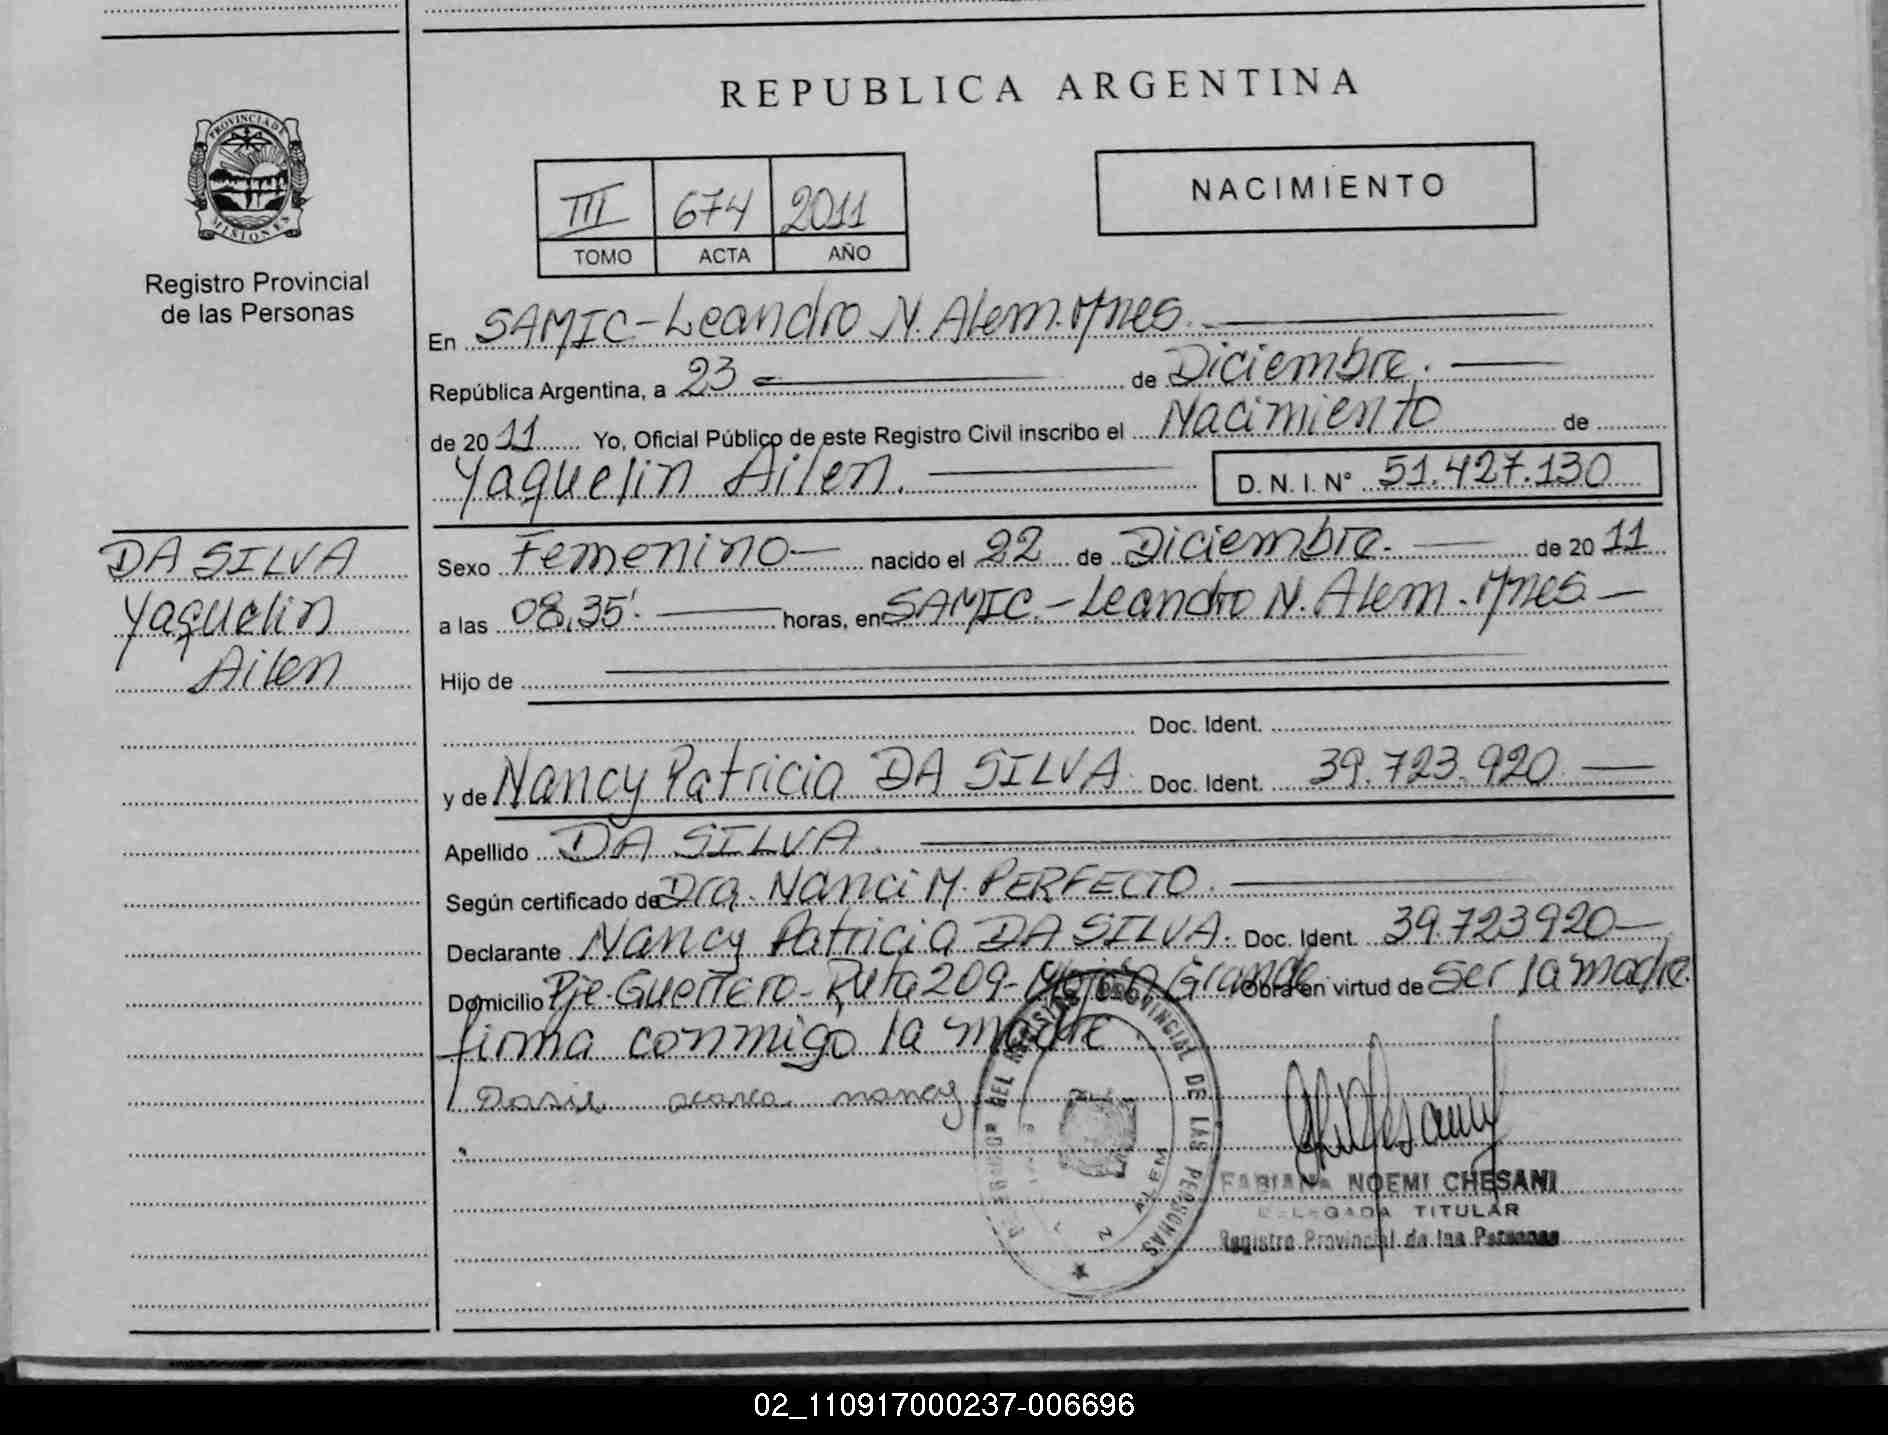 REPUBLICA ARGENTINA
PROVINCIA DE
MISIONES
Registro Provincial
de las Personas
III 674 2011
TOMO ACTA AÑO
NACIMIENTO
En SAMIC-Leandro N. Alem. Mnes.
República Argentina, a 23 de Diciembre.
de 2011 Yo, Oficial Público de este Registro Civil inscribo el Nacimiento de
Yaquelin Ailen. D. N. I. Nº 51.427.130
DA SILVA
Yaquelin
Ailen
Sexo Femenino nacido el 22 de Diciembre. de 2011
a las 08,35'. horas, en SAMIC.-Leandro N. Alem. Mnes.
Hijo de
Doc. Ident.
y de Nancy Patricia DA SILVA. Doc. Ident. 39.723.920
Apellido DA SILVA.
Según certificado de Dra. Nanci M. PERFECTO.
Declarante Nancy Patricia DA SILVA. Doc. Ident. 39.723920
Domicilio Pje. Guerrero-Ruta 209-Mojón Grande Obra en virtud de ser la madre.
firma conmigo la madre
nancy
REGISTRO PROVINCIAL DE LAS PERSONAS
N. ALEM
FABIANA NOEMI CHESANI
DELEGADA TITULAR
Registro Provincial de las Personas
02_110917000237-006696